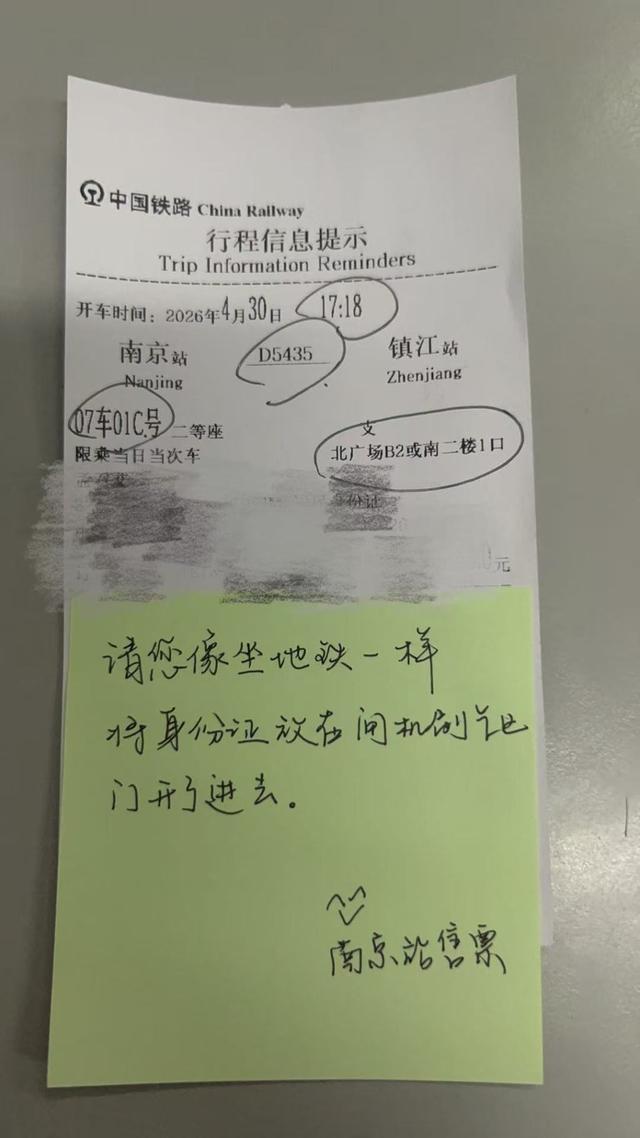 中国铁路 China Railway
行程信息提示
Trip Information Reminders
开车时间：2026年4月30日 17:18
南京站 D5435 镇江站
Nanjing Zhenjiang
07车01C号 二等座 支
限乘当日当次车 北广场B2或南二楼1口
份证
元
请您像坐地铁一样
将身份证放在闸机刷
门开了进去。
南京站售票